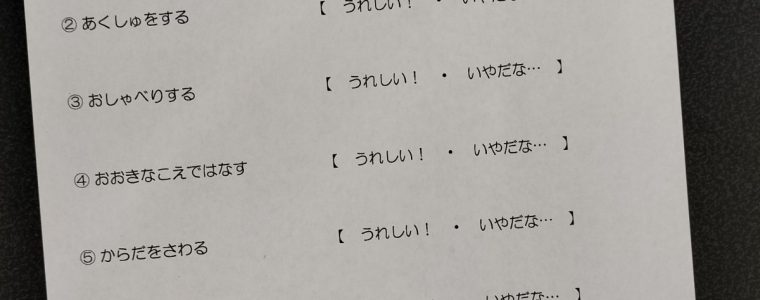 ② あくしゅをする 【 うれしい！ ・ いやだな… 】
③ おしゃべりする 【 うれしい！ ・ いやだな… 】
④ おおきなこえではなす 【 うれしい！ ・ いやだな… 】
⑤ からだをさわる 【 うれしい！ ・ いやだな… 】
いやだな… 】